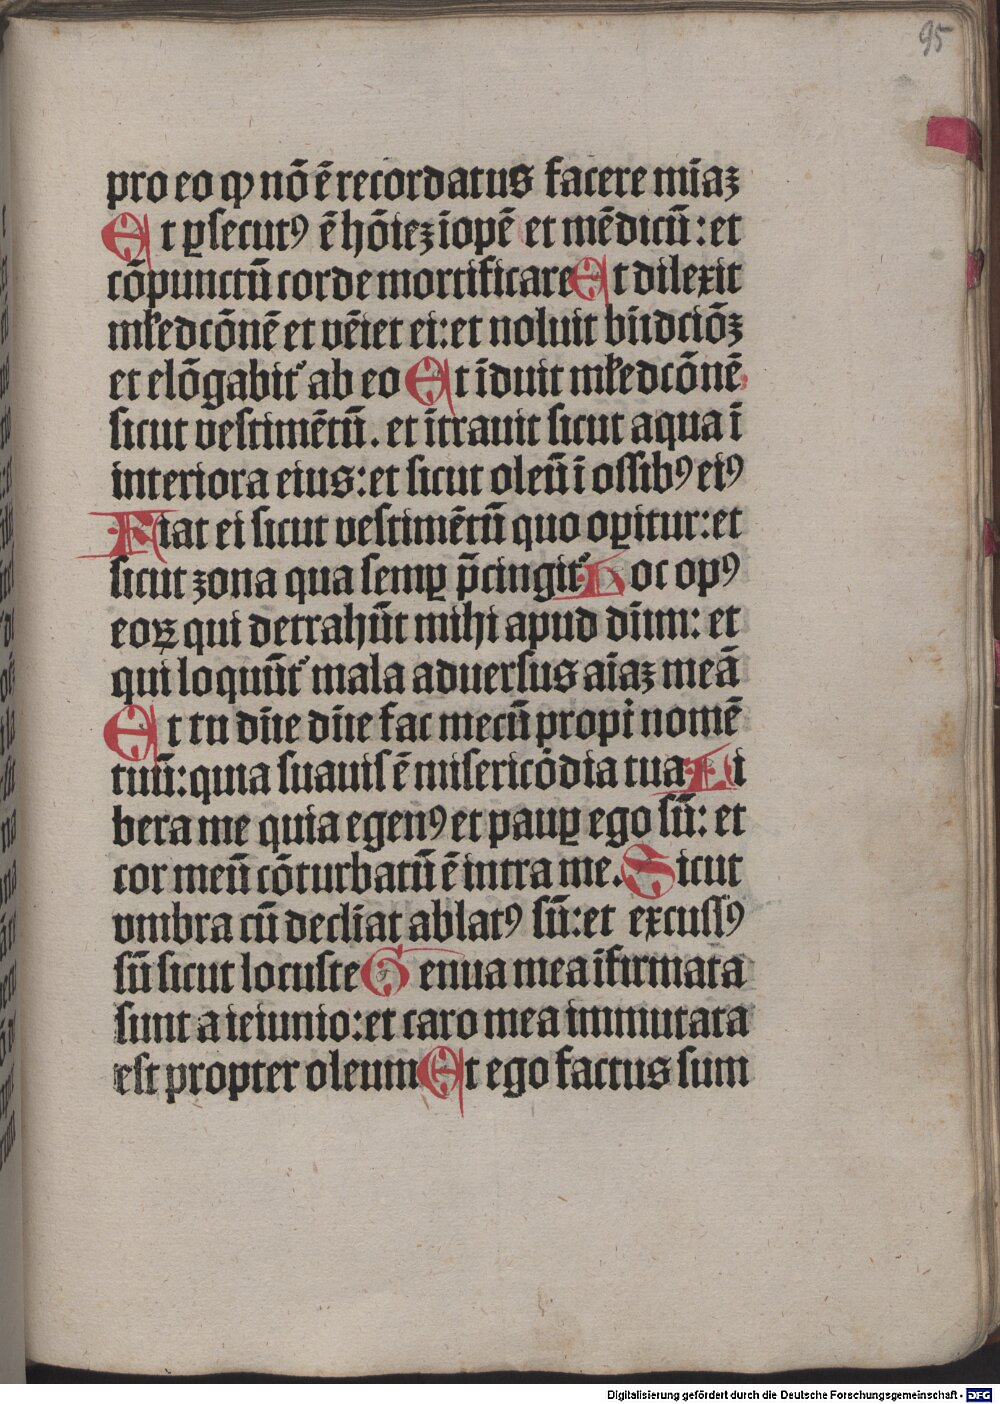 95
pro eo ꝙ nō ē recordatus facere mīaꝫ
Et ꝑsecutꝰ ē hōīeꝫ īopē et mēdicū: et
cōpunctū corde mortificare Et dilexit
mꝉedcōnē et vēiet ei: et noluit bn̄dciōꝫ
et elōgabit᷑ ab eo Et īduit mꝉedcōnē
sicut vestimētū. et ītrauit sicut aqua ī
interiora eius: et sicut oleū ī ossibꝰ eiꝰ
Fiat ei sicut vestimētū quo oꝑitur: et
sicut zona qua semꝑ p̄cingit᷑ Hoc opꝰ
eoꝝ qui detrahūt mihi apud dn̄m: et
qui loquūt᷑ mala aduersus aīaꝫ meā
Et tu dn̄e dn̄e fac mecū propt nomē
tuū: quia suauis ē misericōdia tua Li
bera me quia egenꝰ et pauꝑ ego sū: et
cor meū cōturbatū ē intra me. Sicut
vmbra cū declīat ablatꝰ sū: et excussꝰ
sū sicut locuste Genua mea īfirmata
sunt a ieiunio: et caro mea immutata
est propter oleum Et ego factus sum
Digitalisierung gefördert durch die Deutsche Forschungsgemeinschaft - DFG